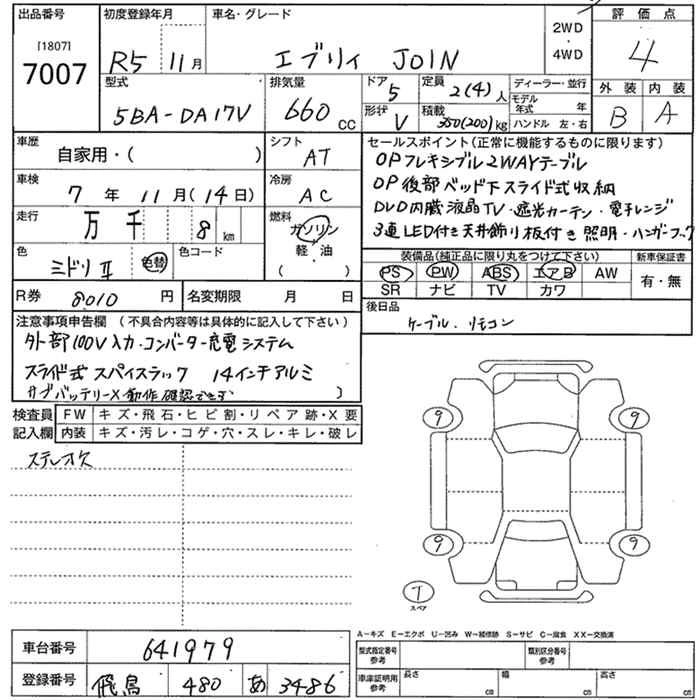 出品番号
[1807]
7007
初度登録年月
R5 11月
車名・グレード
エブリィ JOIN
2WD
・
4WD
評価点
4
外装 内装
B A
型式
5BA-DA17V
排気量
660 CC
ドア
5
形状
V
定員
2(4)人
積載
350(200)kg
ディーラー・並行
モデル年式 年
ハンドル 左・右
車歴
自家用・( )
シフト
AT
車検
7年11月(14日)
冷房
AC
走行
万 千 8 km
燃料
ガソリン
軽・油
( )
色
ミドリII
色替
色コード
R券 8010 円
名変期限 月 日
セールスポイント(正常に機能するものに限ります)
OPフレキシブル2WAYテーブル
OP後部ベッド下スライド式収納
DVD内蔵液晶TV・遮光カーテン・電子レンジ
3連LED付き天井飾り板付き照明・ハンガーフック
装備品(純正品に限り丸をつけて下さい)
PS PW ABS エアB AW
SR ナビ TV カワ
新車保証書
有・無
後日品
ケーブル・リモコン
注意事項申告欄 (不具合内容等は具体的に記入して下さい)
外部100V入力・コンバーター充電システム
スライド式スパイスラック 14インチアルミ
サブバッテリーX動作確認できず )
検査員 FW キズ・飛石・ヒビ割・リペア跡・X要
記入欄 内装 キズ・汚レ・コゲ・穴・スレ・キレ・破レ
ステレオ欠
9 9
9 9
T
スペア
A-キズ E-エクボ U-凹み W-補修跡 S-サビ C-腐食 XX-交換済
車台番号 641979
登録番号 飛鳥 480 あ 3486
型式指定番号
参考
類別区分番号
参考
車庫証明用
参考
長さ cm 幅 cm 高さ cm